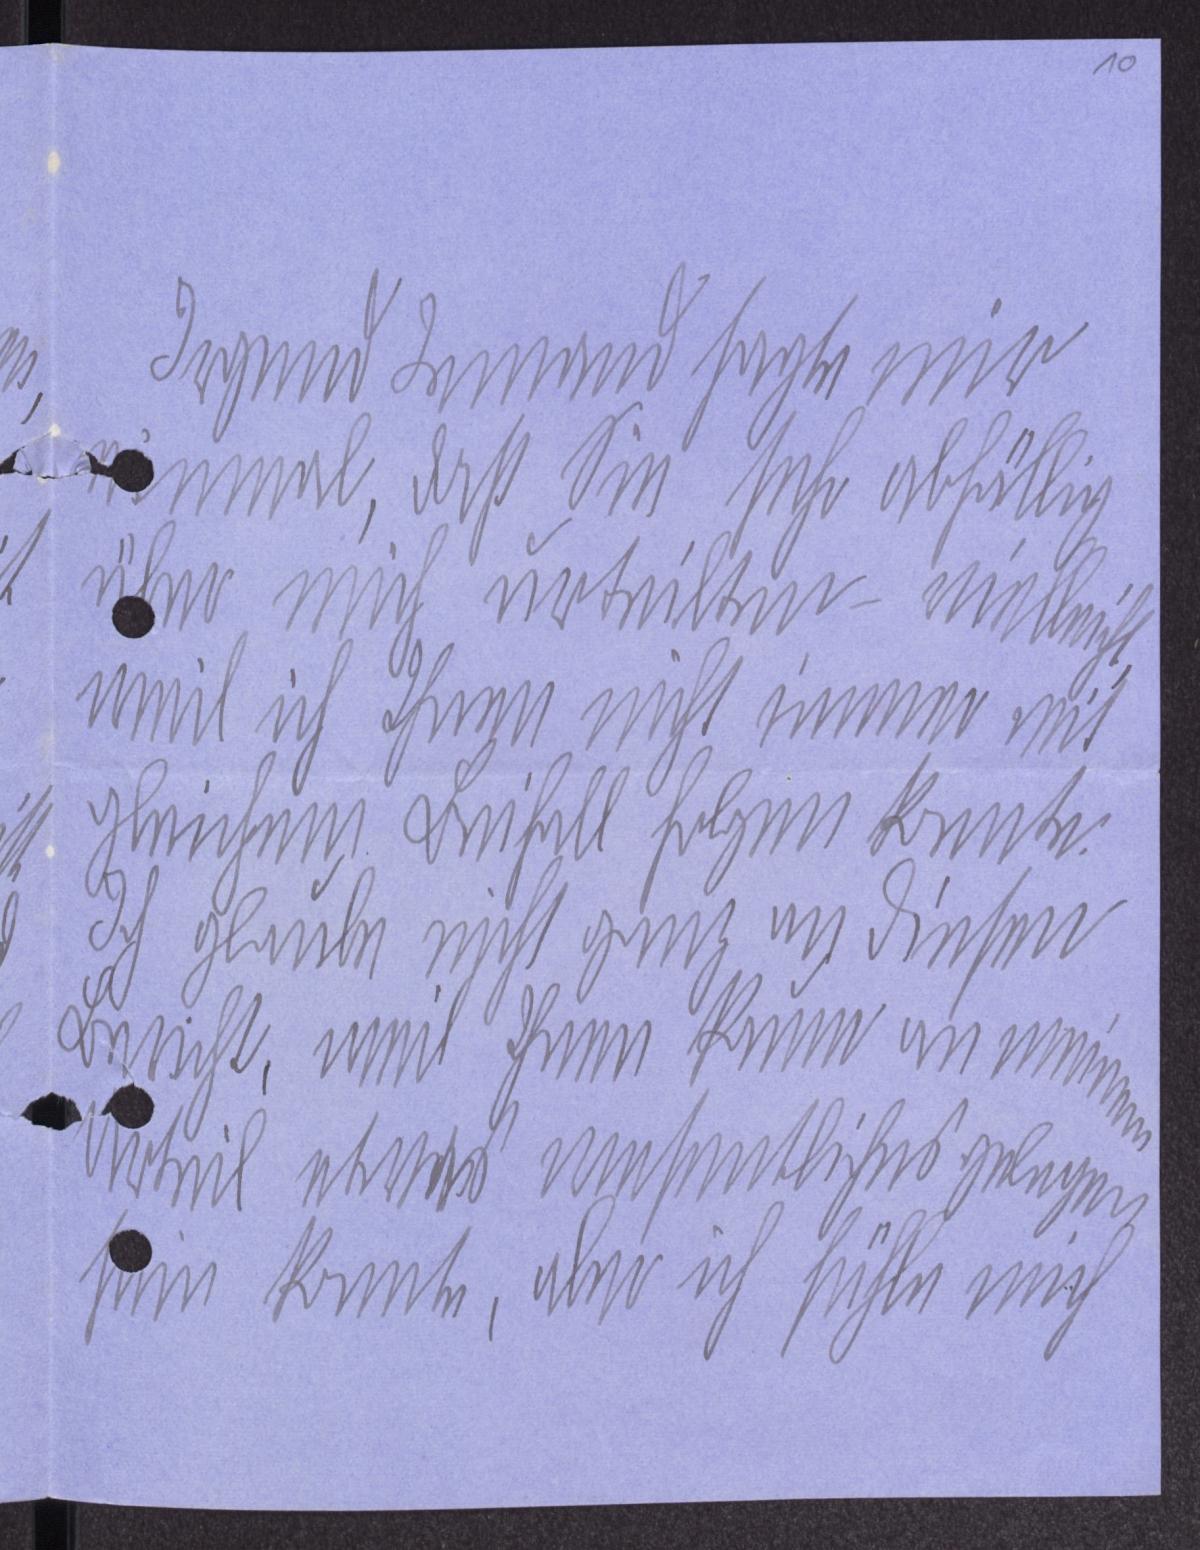 10
Irgend Jemand sagte mir
einmal, daß Sie sehr abfällig
über mich urteilten – vielleicht,
weil ich Ihnen nicht immer mit
gleichem Beifall folgen konnte.
Ich glaube nicht ganz an diesen
Bericht, weil Ihnen kaum an meinem
Urteil etwas wesentliches gelegen
sein konnte, aber ich fühle mich